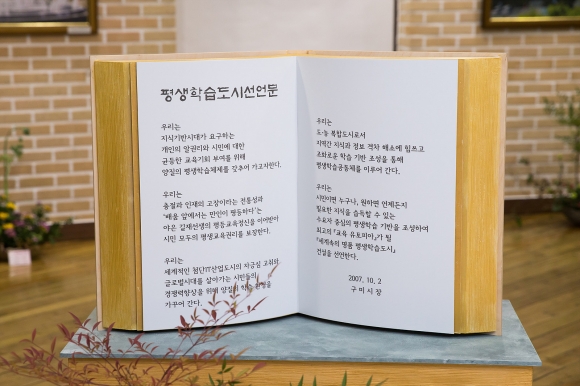 평생학습도시선언문
우리는
지식기반시대가 요구하는
개인의 알권리와 시민에 대한
균등한 교육기회 부여를 위해
양질의 평생학습체제를 갖추어 가고자한다.
우리는
충절과 인재의 고장이라는 전통성과
‘배움 앞에서는 만인이 평등하다’는
야은 길재선생의 평등교육정신을 이어받아
시민 모두의 평생교육권리를 보장한다.
우리는
세계적인 첨단IT산업도시의 자긍심 고취와
글로벌시대를 살아가는 시민들의
경쟁력향상을 위해 양질의 학습 환경을
가꾸어 간다.
우리는
도·농 복합도시로서
지역간 지식과 정보 격차 해소에 힘쓰고
조화로운 학습 기반 조성을 통해
평생학습공동체를 이루어 간다.
우리는
시민이면 누구나, 원하면 언제든지
필요한 지식을 습득할 수 있는
수요자 중심의 평생학습 기반을 조성하여
최고의 『교육 유토피아』가 될
『세계속의 명품 평생학습도시』
건설을 선언한다.
2007. 10. 2
구 미 시 장